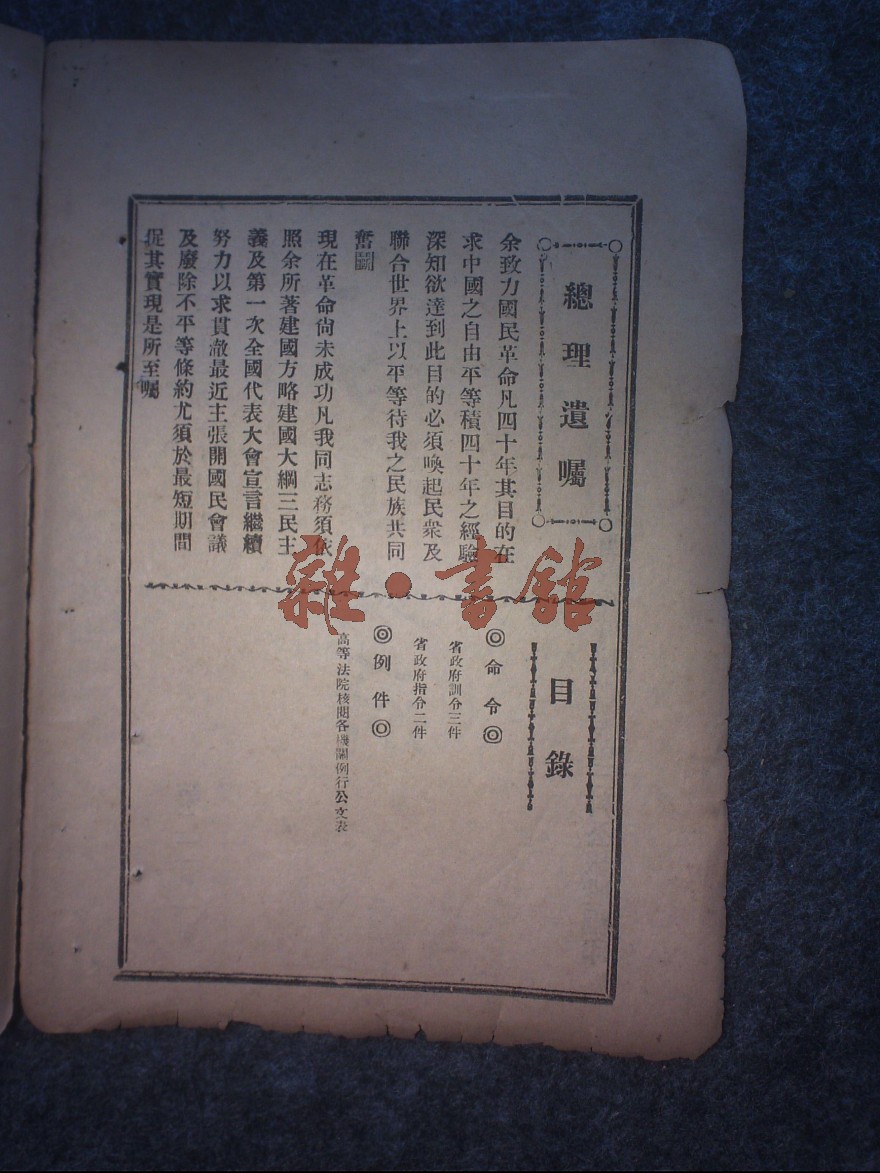 總理遺囑
余致力國民革命凡四十年其目的在
求中國之自由平等積四十年之經驗
深知欲達到此目的必須喚起民衆及
聯合世界上以平等待我之民族共同
奮鬭
現在革命尙未成功凡我同志務須依
照余所著建國方略建國大綱三民主
義及第一次全國代表大會宣言繼續
努力以求貫澈最近主張開國民會議
及廢除不平等條約尤須於最短期間
促其實現是所至囑
目錄
◎命令◎
省政府訓令三件
省政府指令二件
◎例件◎
高等法院核閱各機關例行公文表
雜·書館